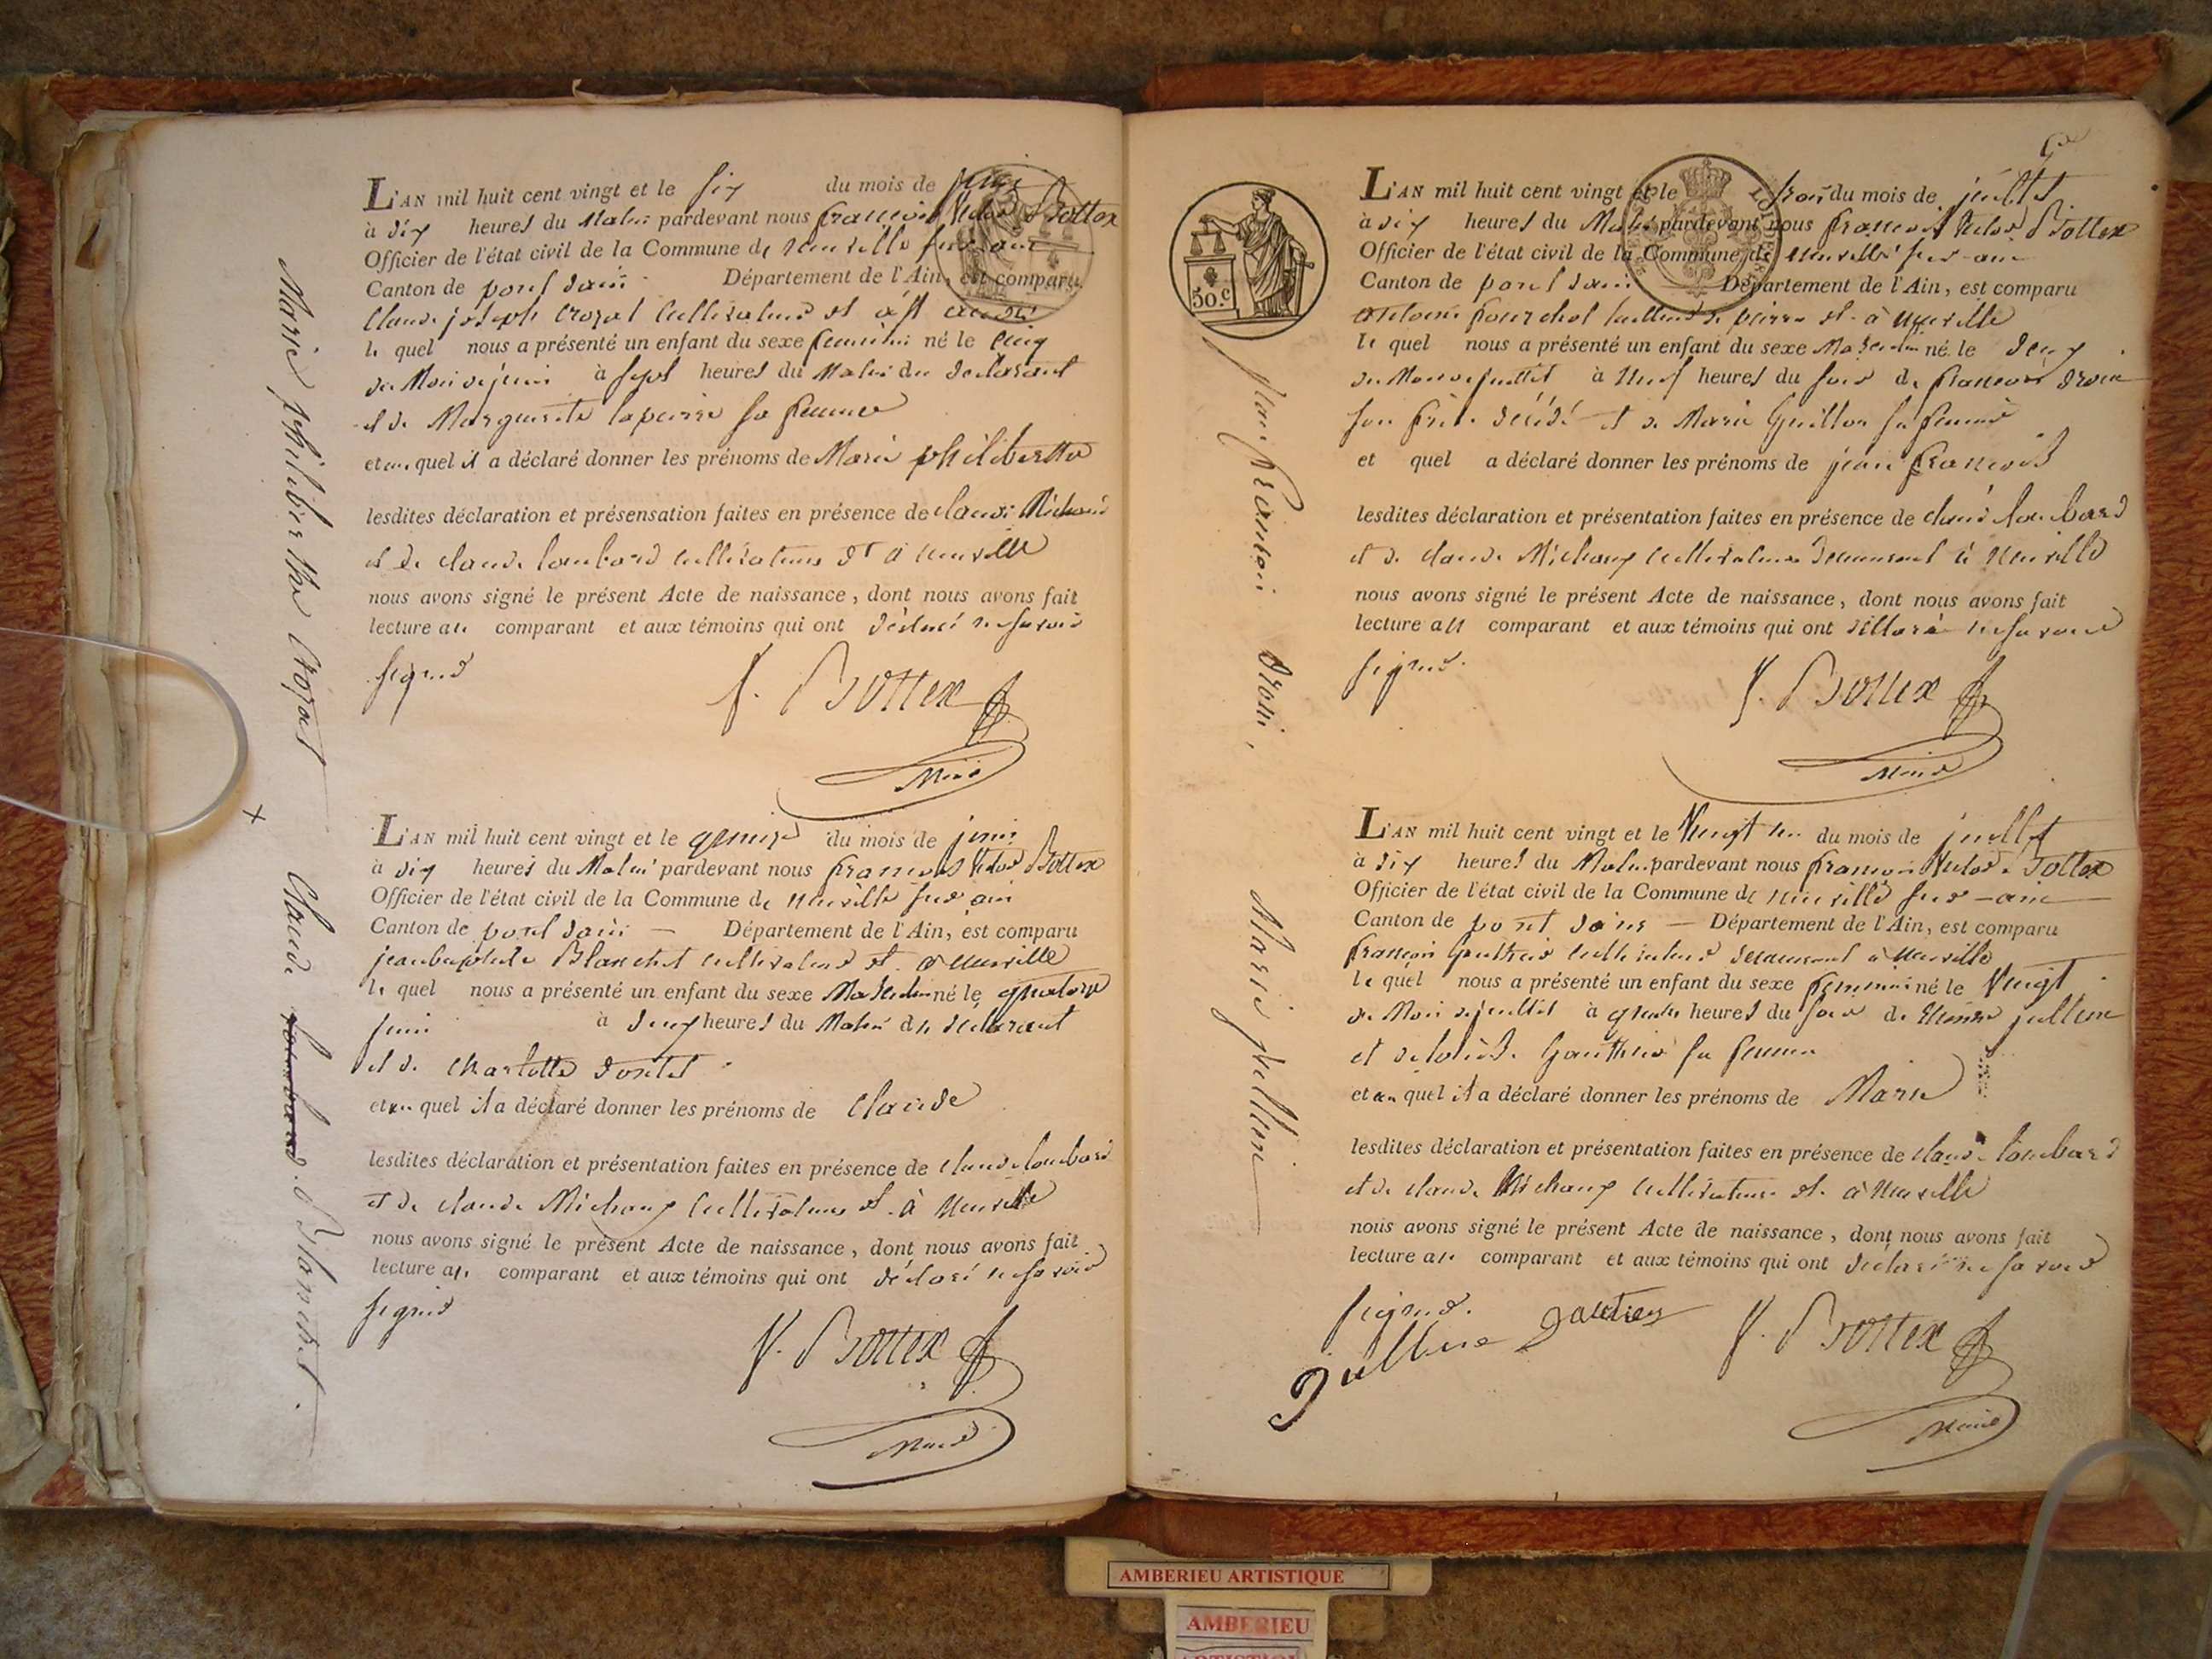 Marie philiberthe Crozat
L'AN mil huit cent vingt et le six du mois de juin
à dix heures du Matin pardevant nous françois Victor Bottex
Officier de l'état civil de la Commune de neuville sur ain
Canton de pont dain Département de l'Ain, est comparu
Claude joseph Crozat Cultivateur
le quel nous a présenté un enfant du sexe feminin né le Cinq
du Mois de juin à sept heures du Matin du declarant
et de Marguerite lapierre sa femme
et au quel il a déclaré donner les prénoms de Marie philiberthe
lesdites déclaration et présensation faites en présence de claude Michaud
et de claude lombard cultivateurs dt à neuville
nous avons signé le présent Acte de naissance, dont nous avons fait
lecture au comparant et aux témoins qui ont déclaré ne savoir
signer
V. Bottex
Maire
Claude lombard Blanchet.
L'AN mil huit cent vingt et le quinze du mois de juin
à dix heures du Matin pardevant nous françois Victor Bottex
Officier de l'état civil de la Commune de neuville sur ain
Canton de pont dain — Département de l'Ain, est comparu
jean baptiste Blanchet cultivateur dt. à neuville
le quel nous a présenté un enfant du sexe Masculin né le quatorze
juin à deux heures du Matin du declarant
et de Charlotte
et au quel il a déclaré donner les prénoms de Claude
lesdites déclaration et présentation faites en présence de claude lombard
et de claude Michaux Cultivateurs dt. à neuville
nous avons signé le présent Acte de naissance, dont nous avons fait
lecture au comparant et aux témoins qui ont déclaré ne savoir
signer
V. Bottex
Maire
50.c
jean françois Droin,
L'AN mil huit cent vingt et le trois du mois de juillet
à dix heures du Matin pardevant nous françois Victor Bottex
Officier de l'état civil de la Commune de neuville sur ain
Canton de pont dain Département de l'Ain, est comparu
antoine à neuville
le quel nous a présenté un enfant du sexe Masculin né le deux
du Mois de juillet à neuf heures du soir de françois droin
son frère décédé et de Marie Guillon sa femme
et quel a déclaré donner les prénoms de jean françois
lesdites déclaration et présentation faites en présence de claude lombard
et de claude Michaux Cultivateurs demeurant à neuville
nous avons signé le présent Acte de naissance, dont nous avons fait
lecture au comparant et aux témoins qui ont déclaré ne savoir
signer.
V. Bottex
Maire
Marie jullien
L'AN mil huit cent vingt et le Vingt un du mois de juillet
à dix heures du Matin pardevant nous françois Victor Bottex
Officier de l'état civil de la Commune de neuville sur ain
Canton de pont dain — Département de l'Ain, est comparu
françois Gauthier cultivateur demeurant à neuville
le quel nous a présenté un enfant du sexe feminin né le Vingt
du Mois de juillet à quatre heures du soir de Etienne jullien
et de Gauthier sa femme
et au quel il a déclaré donner les prénoms de Marie
lesdites déclaration et présentation faites en présence de claude lombard
et de claude Michaux Cultivateurs dt. à neuville
nous avons signé le présent Acte de naissance, dont nous avons fait
lecture au comparant et aux témoins qui ont déclaré ne savoir
signer.
Jullien gautier V. Bottex
Maire
AMBERIEU ARTISTIQUE
AMBERIEU
ARTISTIQUE